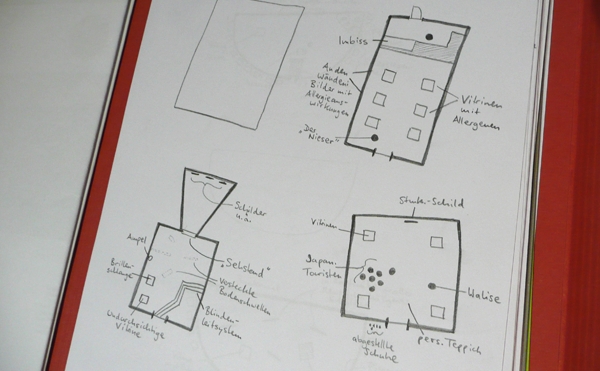 Imbiss
An den
Wänden:
Bilder mit
Allergieaus-
wirkungen
Vitrinen
mit
Allergenen
„Der
Nieser"
Schilder
u.ä.
Ampel
„Sehstand"
Brillen-
schlange
versteckte
Bodenschwellen
Blinden-
leitsystem
Undurchsichtige
Vitrine
-Schild
Vitrinen
Japan.
Touristen
Walise
pers. Teppich
abgestellte
Schuhe